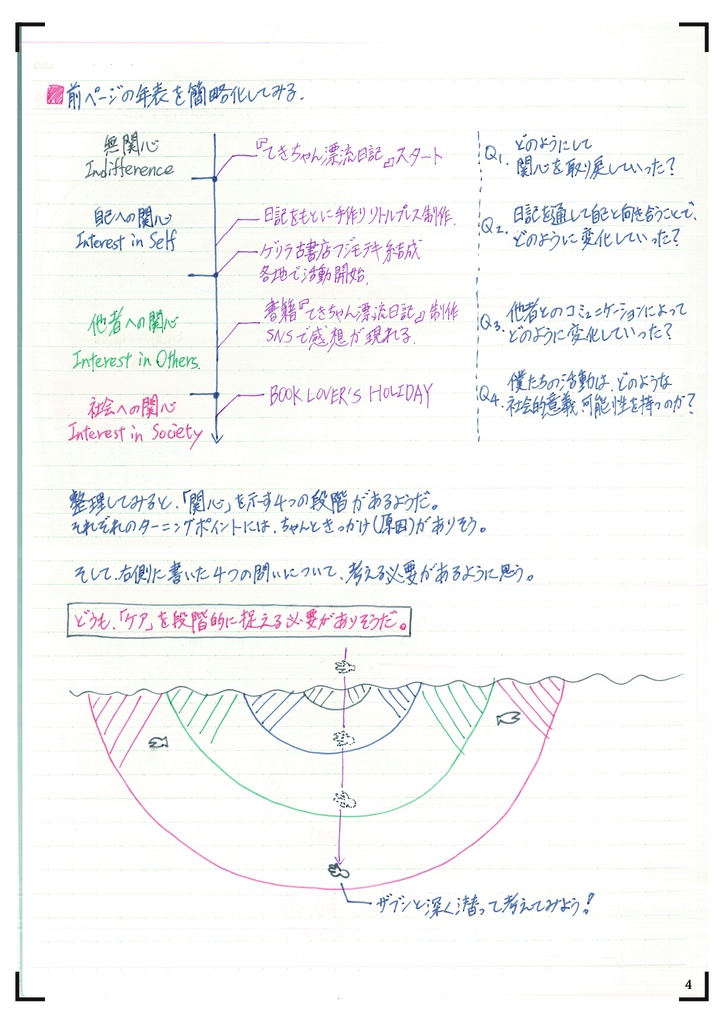 前ページの年表を簡略化してみる.
無関心
Indifference
『てきちゃん漂流日記』スタート
Q1. どのようにして
関心を取り戻していった?
自己への関心
Interest in Self
日記をもとに手作りリトルプレス制作.
ゲリラ古書店フジモヲテキ結成
各地で活動開始.
Q2. 日記を通して自己と向き合うことで、
どのように変化していった?
他者への関心
Interest in Others.
書籍『てきちゃん漂流日記』制作
SNSで感想が現れる.
Q3. 他者とのコミュニケーションによって
どのように変化していった?
社会への関心
Interest in Society
BOOK LOVER'S HOLIDAY
Q4. 僕たちの活動は、どのような
社会的意義、可能性を持つのか?
整理してみると、「関心」を示す4つの段階があるようだ。
それぞれのターニングポイントには、ちゃんときっかけ(原因)がありそう。
そして、右側に書いた4つの問いについて、考える必要があるように思う。
どうも、「ケア」を段階的に捉える必要がありそうだ。
ザブンと深く潜って考えてみよう!
4